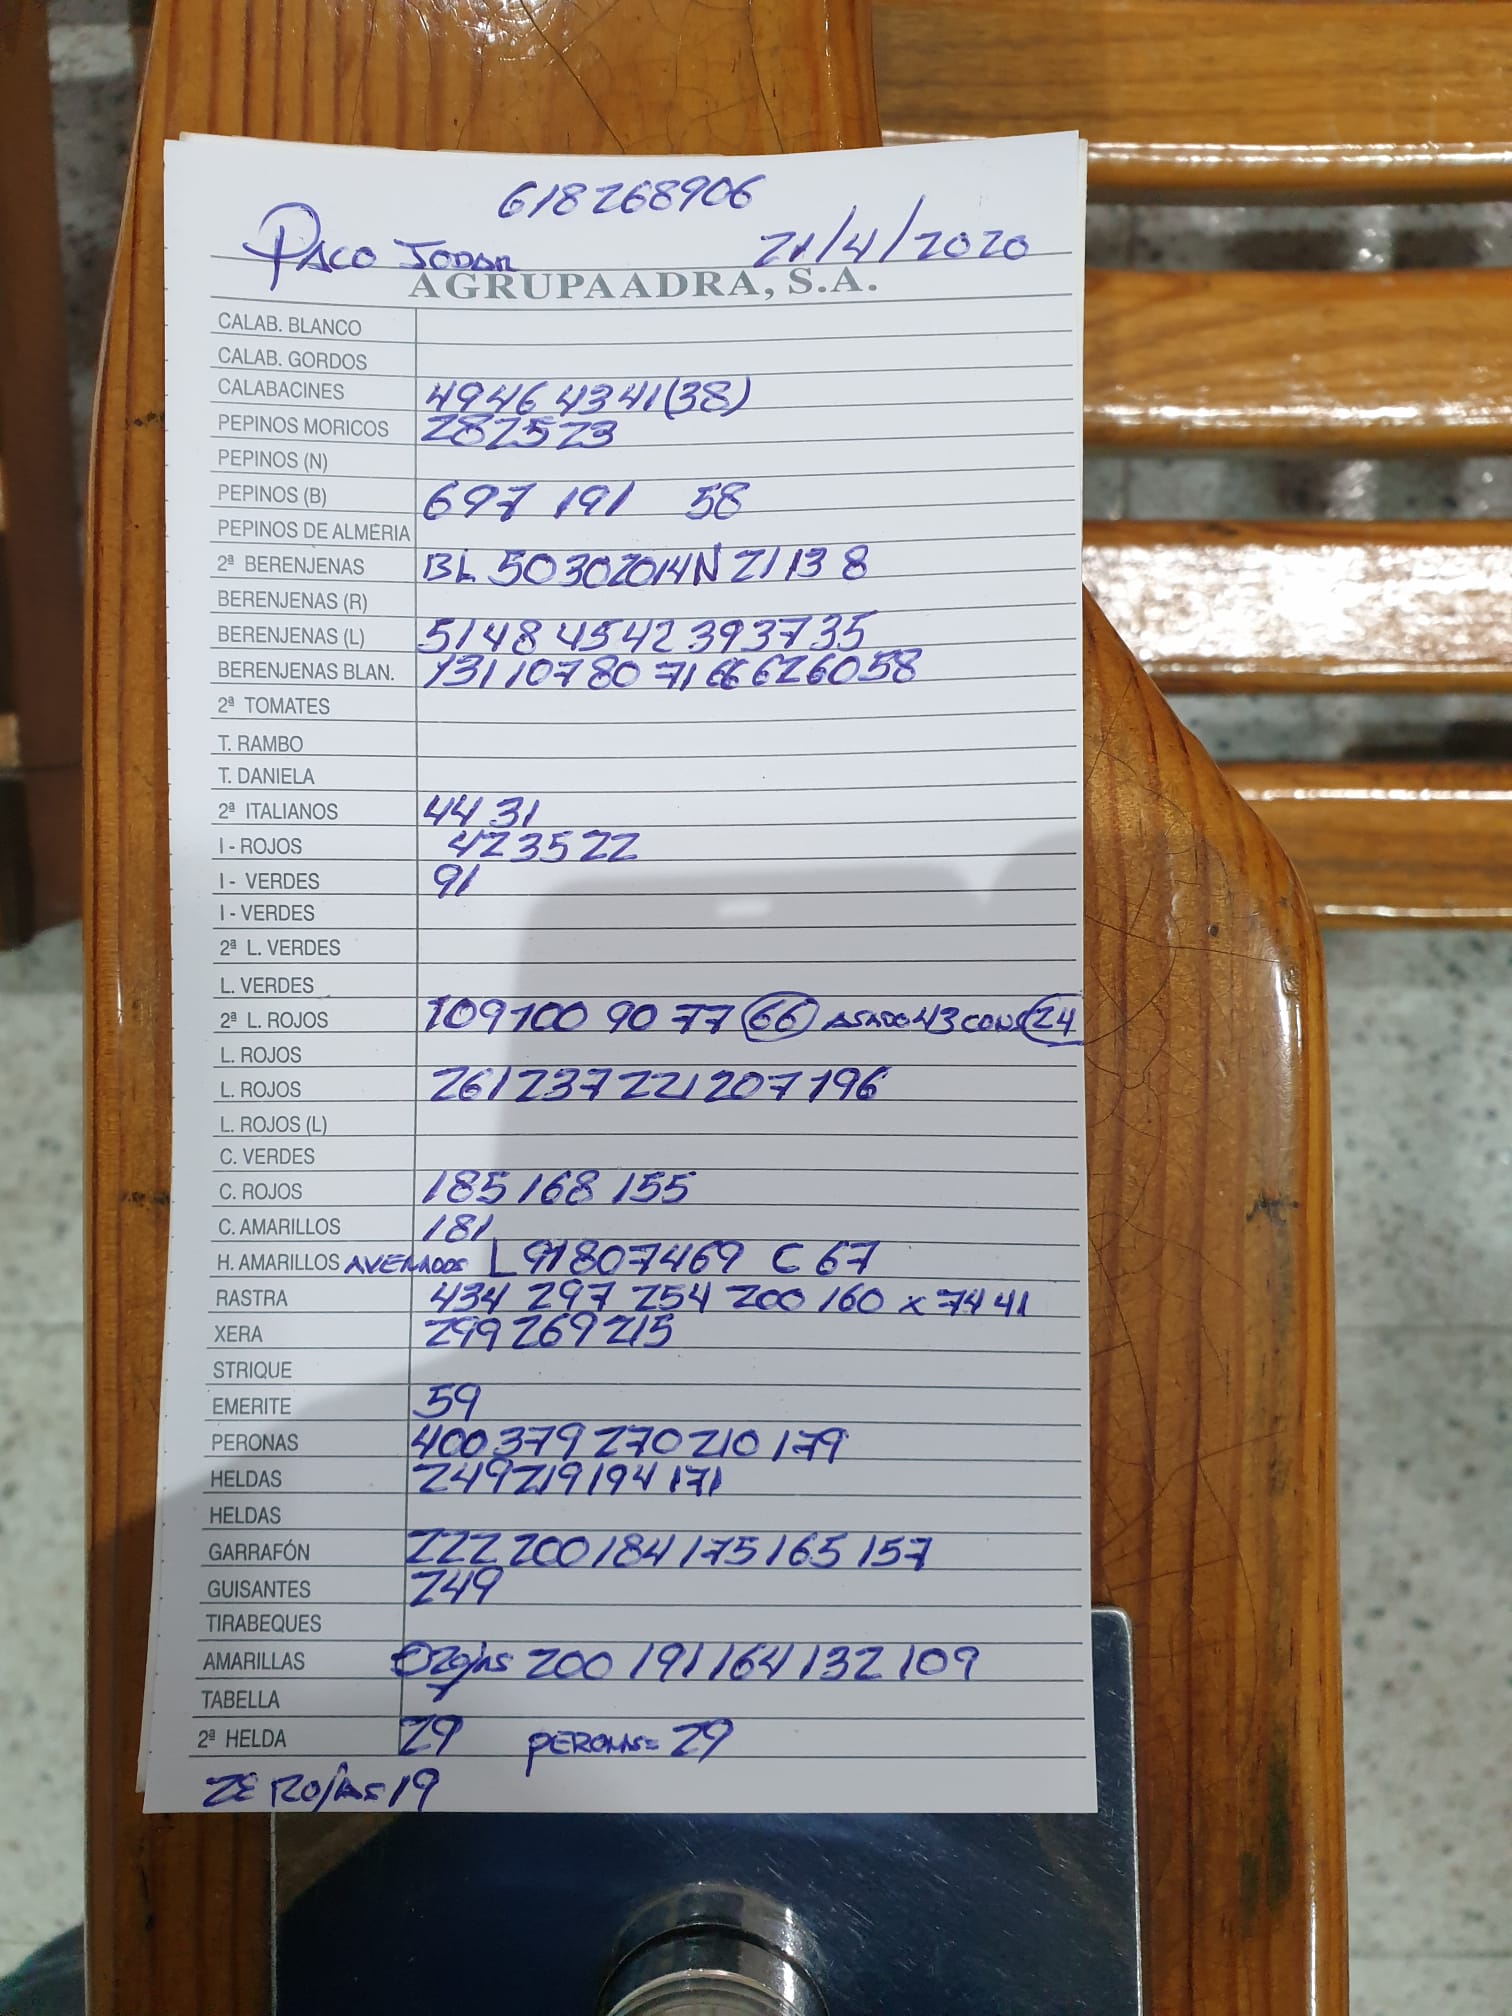 618268906
PACO JODAR 21/4/2020
AGRUPAADRA, S.A.
CALAB. BLANCO
CALAB. GORDOS
CALABACINES 49 46 43 41 (38)
PEPINOS MORICOS 28 25 23
PEPINOS (N)
PEPINOS (B) 697 191 58
PEPINOS DE ALMERIA
2ª BERENJENAS BL 50 30 20 14 N 21 13 8
BERENJENAS (R)
BERENJENAS (L) 51 48 45 42 39 37 35
BERENJENAS BLAN. 131 107 80 71 66 62 60 58
2ª TOMATES
T. RAMBO
T. DANIELA
2ª ITALIANOS 44 31
I - ROJOS 42 35 22
I - VERDES 91
I - VERDES
2ª L. VERDES
L. VERDES
2ª L. ROJOS 109 100 90 77 66 ASADO 43 CONS 24
L. ROJOS
L. ROJOS 261 237 221 207 196
L. ROJOS (L)
C. VERDES
C. ROJOS 185 168 155
C. AMARILLOS 181
H. AMARILLOS AVERIADOS L 91 80 74 69 C 67
RASTRA 434 297 254 200 160 x 74 41
XERA 299 269 215
STRIQUE
EMERITE 59
PERONAS 400 379 270 210 179
HELDAS 249 219 194 171
HELDAS
GARRAFÓN 222 200 184 175 165 157
GUISANTES 249
TIRABEQUES
AMARILLAS 200 191 164 132 109
TABELLA
2ª HELDA 29 PERONAS= 29
ROJAS 19